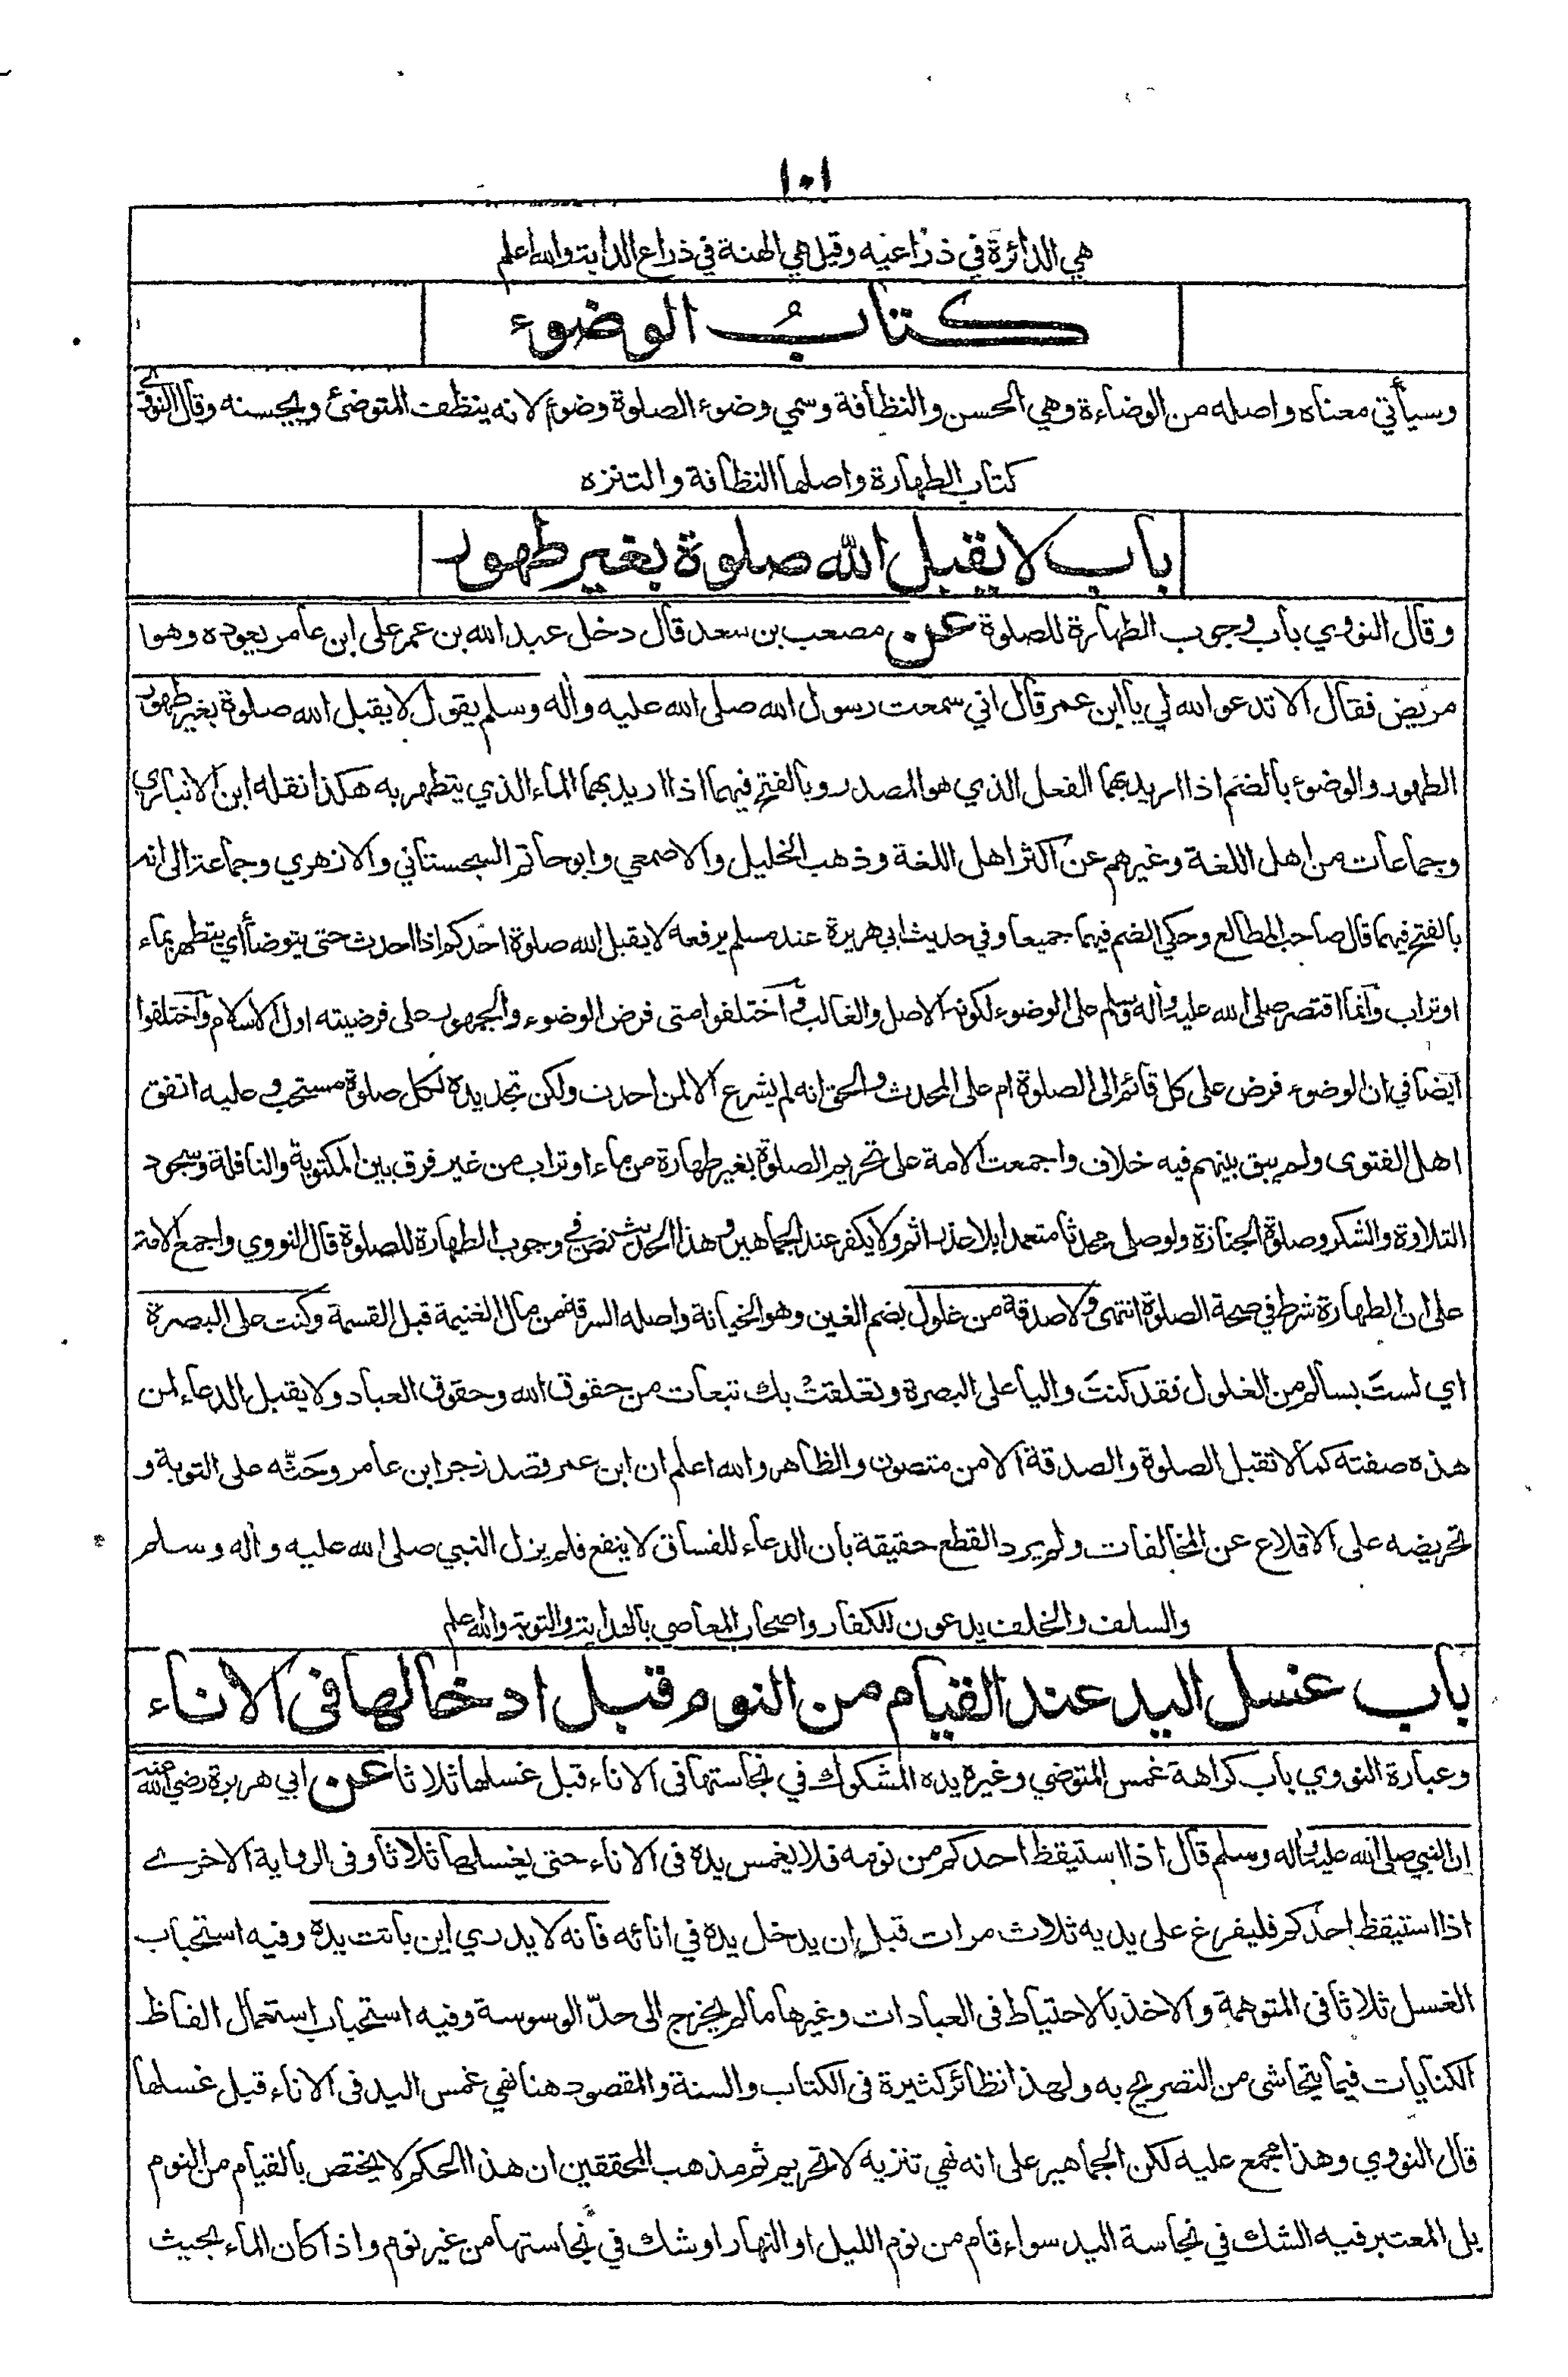 ١٠١
هي الدائرة في ذراعيه وقيل هي الهنة في ذراع الدابة والله اعلم
كتابُ الوضوء
وسيأتي معناه واصله من الوضاءة وهي الحسن والنظافة وسمي وضوء الصلوة وضوءً لانه ينظف المتوضئ ويحسنه وقال النووي
كتاب الطهارة واصلها النظافة والتنزه
باب لا يقبل الله صلوة بغير طهور
وقال النووي باب وجوب الطهارة للصلوة عن مصعب بن سعد قال دخل عبد الله بن عمر على ابن عامر يعوده وهو
مريض فقال الا تدعو الله لي يا ابن عمر قال اني سمعت رسول الله صلى الله عليه واله وسلم يقول لا يقبل الله صلوة بغير طهور
الطهور والوضوء بالضم اذا اريد بهما الفعل الذي هو المصدر وبالفتح فيهما اذا اريد بهما الماء الذي يتطهر به هكذا نقله ابن الانباري
وجماعات من اهل اللغة وغيرهم عن اكثر اهل اللغة وذهب الخليل والاصمعي وابو حاتم السجستاني والازهري وجماعة الى انه
بالفتح فيهما قال صاحب المطالع وحكي الضم فيهما جميعا وفي حديث ابي هريرة عند مسلم يرفعه لا يقبل الله صلوة احدكم اذا احدث حتى يتوضأ اي يتطهر بماء
او تراب وانما اقتصر صلى الله عليه واله وسلم على الوضوء لكونه الاصل والغالب واختلفوا متى فرض الوضوء والجمهور على فرضيته اول الاسلام واختلفوا
ايضا في ان الوضوء فرض على كل قائم الى الصلوة ام على المحدث والحق انه لم يشرع الا لمن احدث ولكن تجديده لكل صلوة مستحب وعليه اتفق
اهل الفتوى ولم يبق بينهم فيه خلاف واجمعت الامة على تحريم الصلوة بغير طهارة من ماء او تراب من غير فرق بين المكتوبة والنافلة وسجود
التلاوة والشكر وصلوة الجنازة ولو صلى محدثا متعمدا بلا عذر اثم ولا يكفر عند الجماهير وهذا الحديث نص في وجوب الطهارة للصلوة قال النووي واجمع الامة
على ان الطهارة شرط في صحة الصلوة انتهى ولا صدقة من غلول بضم الغين وهو الخيانة واصله السرقة من مال الغنيمة قبل القسمة وكنت على البصرة
اي لستَ بسالم من الغلول فقد كنتَ واليا على البصرة وتعلقتْ بك تبعات من حقوق الله وحقوق العباد ولا يقبل الدعاء لمن
هذه صفته كما لا تقبل الصلوة والصدقة الا من متصون والظاهر والله اعلم ان ابن عمر قصد زجر ابن عامر وحَثّه على التوبة و
تحريضه على الاقلاع عن المخالفات ولم يرد القطع حقيقة بان الدعاء للفساق لا ينفع فلم يزل النبي صلى الله عليه واله وسلم
والسلف والخلف يدعون للكفار واصحاب المعاصي بالهداية والتوبة والله اعلم
باب غسل اليد عند القيام من النوم قبل ادخالها في الاناء
وعبارة النووي باب كراهة غمس المتوضي وغيره يده المشكوك في نجاستها في الاناء قبل غسلها ثلاثا عن ابي هريرة رضي الله عنه
ان النبي صلى الله عليه واله وسلم قال اذا استيقظ احدكم من نومه فلا يغمس يده في الاناء حتى يغسلها ثلاثا وفي الرواية الاخرى
اذا استيقظ احدكم فليفرغ على يديه ثلاث مرات قبل ان يدخل يده في انائه فانه لا يدري اين باتت يده وفيه استحباب
الغسل ثلاثا في المتوهمة والاخذ بالاحتياط في العبادات وغيرها ما لم يخرج الى حدّ الوسوسة وفيه استحباب استعمال الفاظ
الكنايات فيما يتحاشى من التصريح به ولهذا نظائر كثيرة في الكتاب والسنة والمقصود هنا نهي غمس اليد في الاناء قبل غسلها
قال النووي وهذا مجمع عليه لكن الجماهير على انه نهي تنزيه لا تحريم ثم مذهب المحققين ان هذا الحكم لا يختص بالقيام من النوم
بل المعتبر فيه الشك في نجاسة اليد سواء قام من نوم الليل او النهار او شك في نجاستها من غير نوم واذا كان الماء بحيث